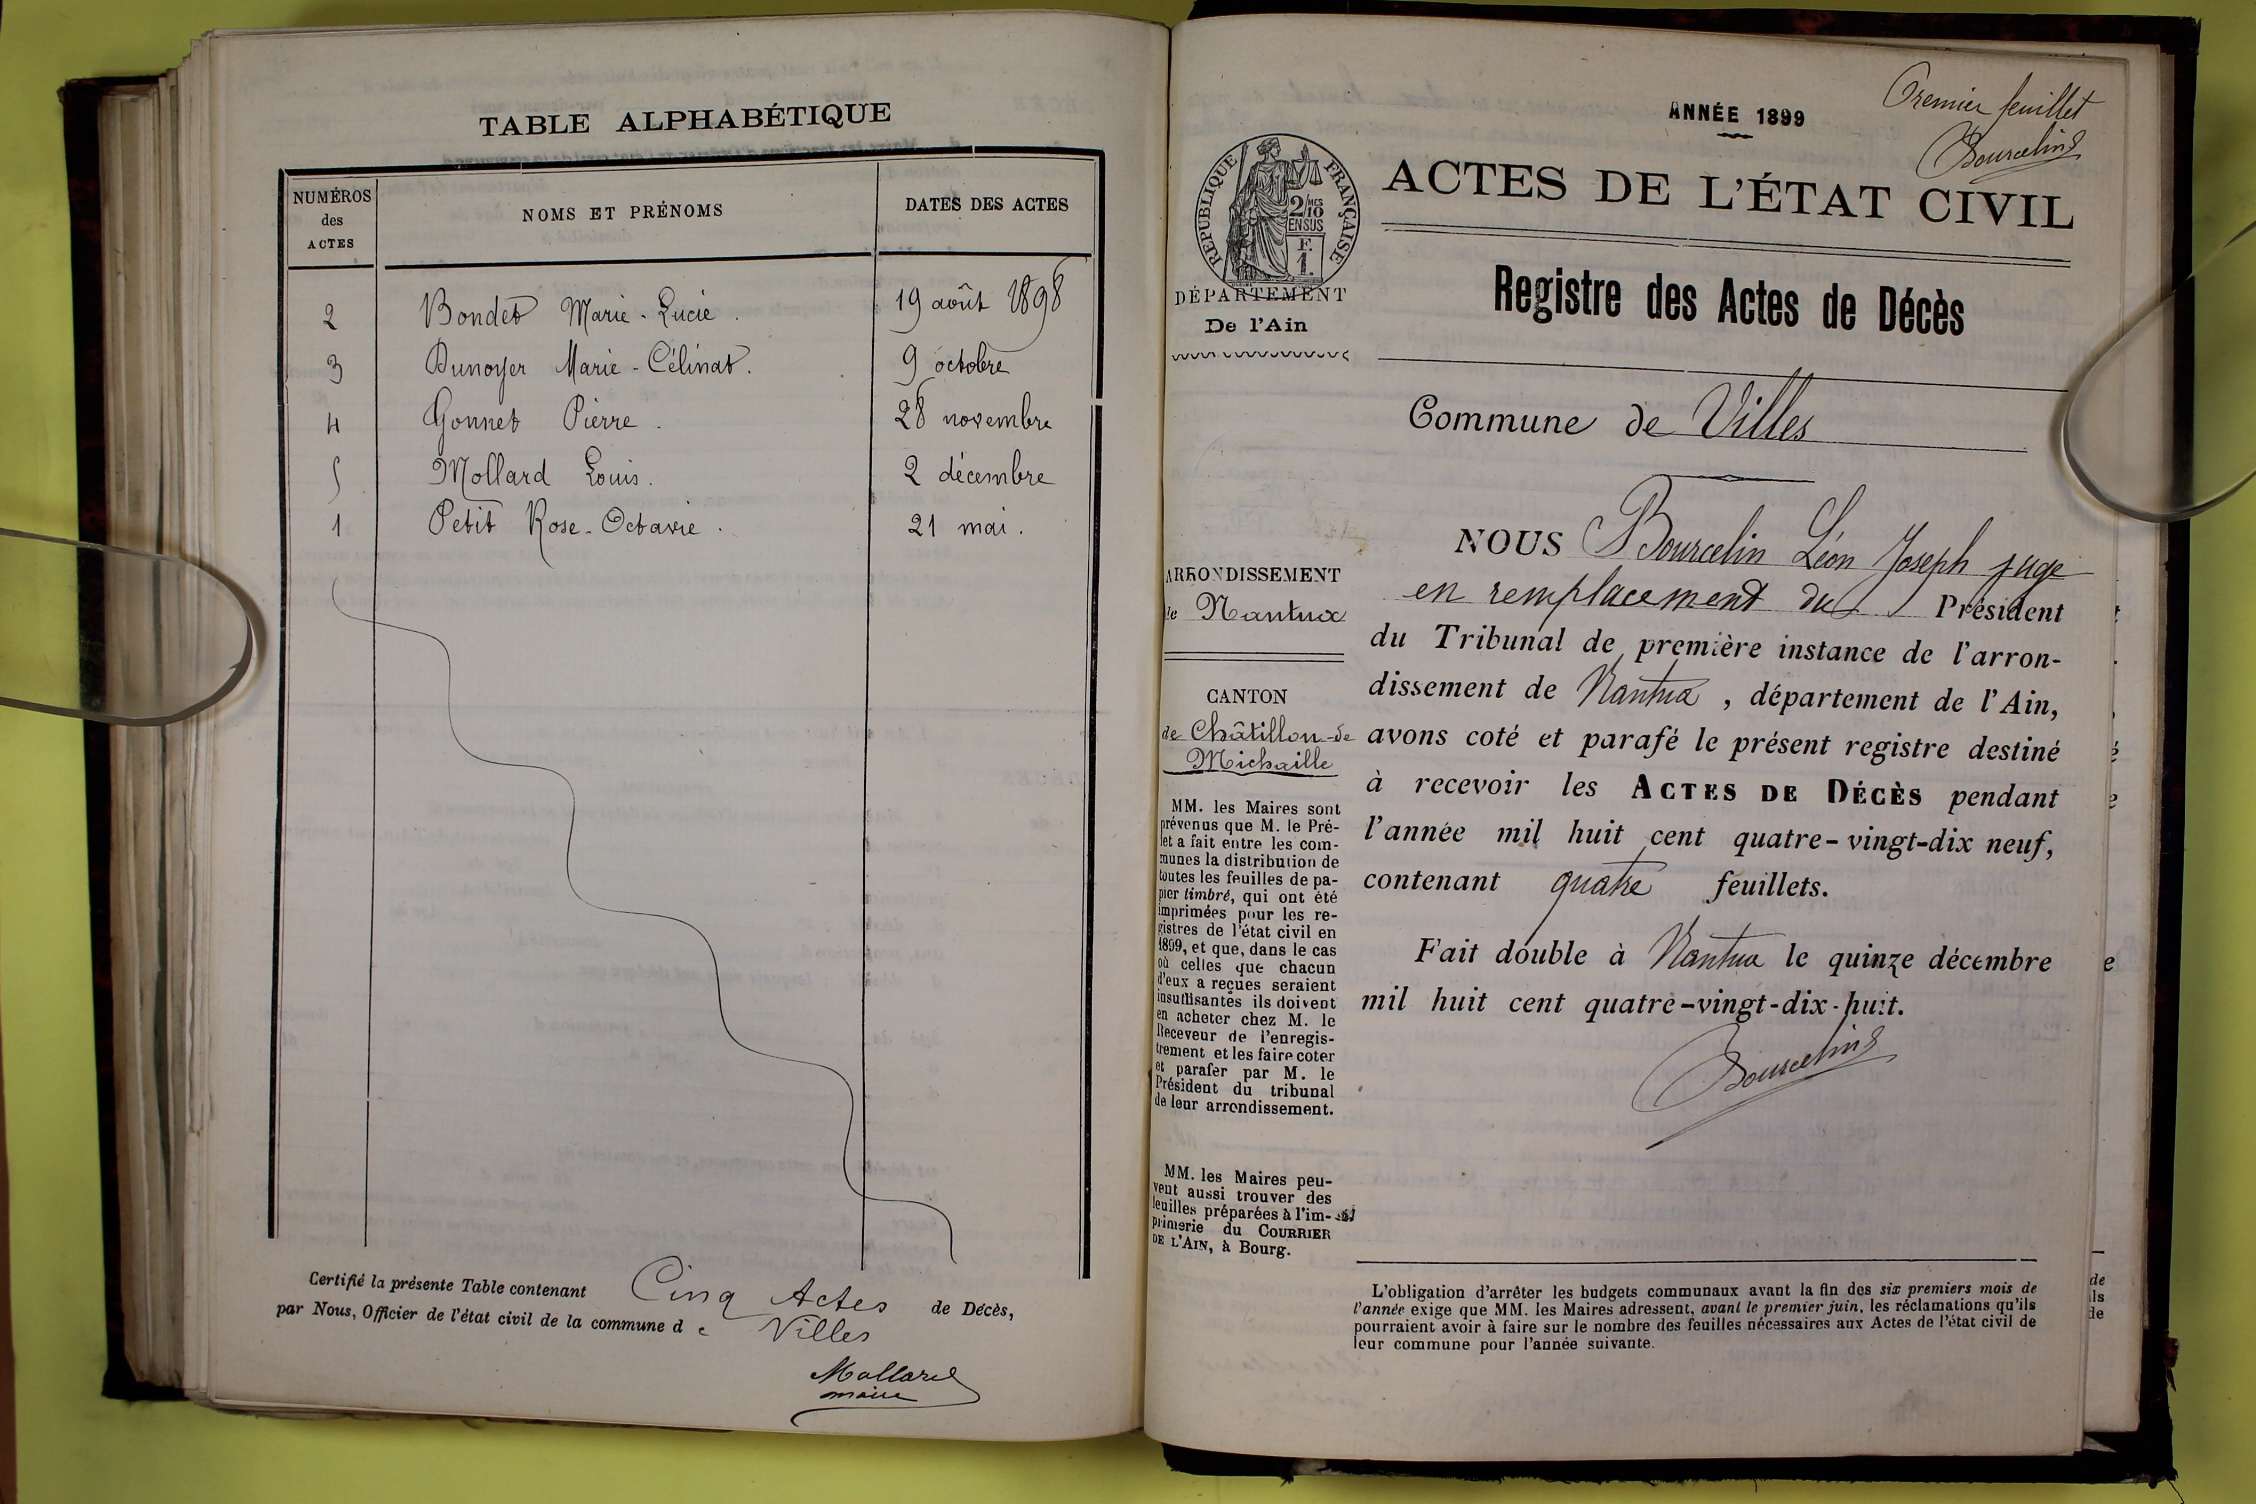 TABLE ALPHABÉTIQUE
NUMÉROS
des
ACTES
NOMS ET PRÉNOMS
DATES DES ACTES
2 Bondet Marie-Lucie. 19 août 1898
3 Dunoyer Marie-Célinat. 9 octobre
4 Gonnet Pierre. 28 novembre
5 Mollard Louis. 2 décembre
1 Petit Rose-Octavie. 21 mai.
Certifié la présente Table contenant Cinq Actes de Décès,
par Nous, Officier de l'état civil de la commune de Villes
Mollard
maire
Premier feuillet
Bourcelin
ANNÉE 1899
RÉPUBLIQUE FRANÇAISE
2/10 MES
EN SUS
F.
1.
ACTES DE L'ÉTAT CIVIL
DÉPARTEMENT
De l'Ain
Registre des Actes de Décès
Commune de Villes
ARRONDISSEMENT
de Nantua
CANTON
de Châtillon-de
Michaille
MM. les Maires sont
prévenus que M. le Pré-
fet a fait entre les com-
munes la distribution de
toutes les feuilles de pa-
pier timbré, qui ont été
imprimées pour les re-
gistres de l'état civil en
1899, et que, dans le cas
où celles que chacun
d'eux a reçues seraient
insuffisantes ils doivent
en acheter chez M. le
Receveur de l'enregis-
trement et les faire coter
et parafer par M. le
Président du tribunal
de leur arrondissement.
MM. les Maires peu-
vent aussi trouver des
feuilles préparées à l'im-
primerie du COURRIER
DE L'AIN, à Bourg.
NOUS Bourcelin Léon Joseph juge
en remplacement du Président
du Tribunal de première instance de l'arron-
dissement de Nantua, département de l'Ain,
avons coté et parafé le présent registre destiné
à recevoir les ACTES DE DÉCÈS pendant
l'année mil huit cent quatre-vingt-dix neuf,
contenant quatre feuillets.
Fait double à Nantua le quinze décembre
mil huit cent quatre-vingt-dix-huit.
Bourcelin
L'obligation d'arrêter les budgets communaux avant la fin des six premiers mois de
l'année exige que MM. les Maires adressent, avant le premier juin, les réclamations qu'ils
pourraient avoir à faire sur le nombre des feuilles nécessaires aux Actes de l'état civil de
leur commune pour l'année suivante.